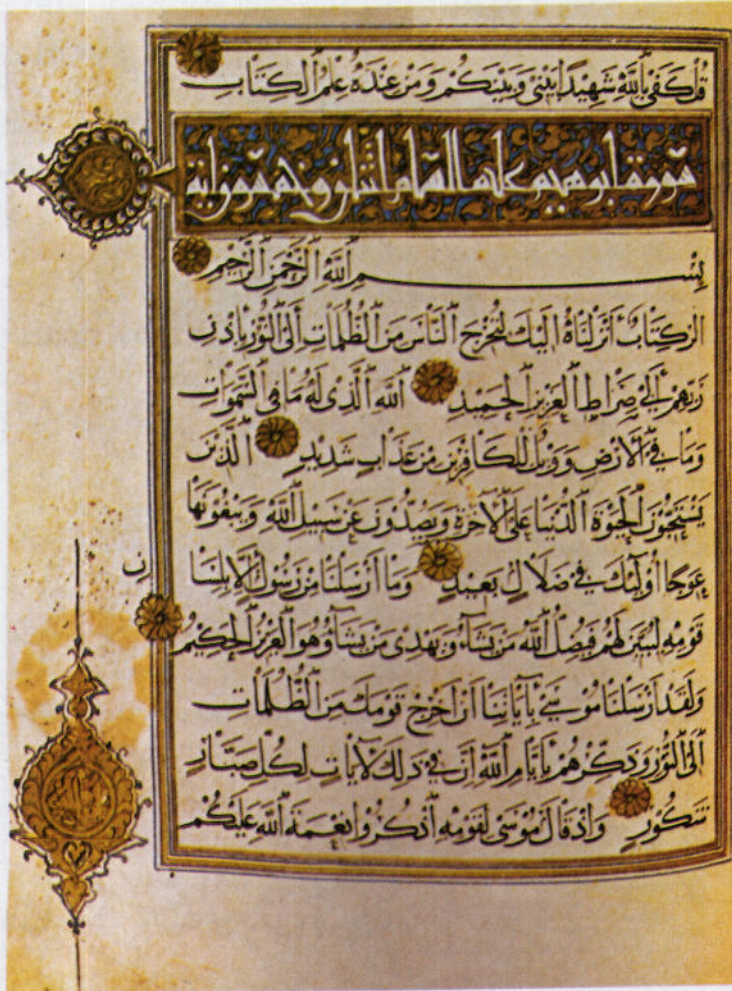 قُلْ كَفَىٰ بِاللَّهِ شَهِيدًا بَيْنِي وَبَيْنَكُمْ وَمَنْ عِنْدَهُ عِلْمُ الْكِتَابِ
سورة ابرهيم عليه السلام اثنان وخمسون اية
بِسْمِ اللَّهِ الرَّحْمَٰنِ الرَّحِيمِ
الر كِتَابٌ أَنْزَلْنَاهُ إِلَيْكَ لِتُخْرِجَ النَّاسَ مِنَ الظُّلُمَاتِ إِلَى النُّورِ بِإِذْنِ
رَبِّهِمْ إِلَىٰ صِرَاطِ الْعَزِيزِ الْحَمِيدِ اللَّهِ الَّذِي لَهُ مَا فِي السَّمٰوَاتِ
وَمَا فِي الْأَرْضِ وَوَيْلٌ لِلْكَافِرِينَ مِنْ عَذَابٍ شَدِيدٍ الَّذِينَ
يَسْتَحِبُّونَ الْحَيٰوةَ الدُّنْيَا عَلَى الْآخِرَةِ وَيَصُدُّونَ عَنْ سَبِيلِ اللَّهِ وَيَبْغُونَهَا
عِوَجًا أُولَٰئِكَ فِي ضَلَالٍ بَعِيدٍ وَمَا أَرْسَلْنَا مِنْ رَسُولٍ إِلَّا بِلِسَانِ
قَوْمِهِ لِيُبَيِّنَ لَهُمْ فَيُضِلُّ اللَّهُ مَنْ يَشَاءُ وَيَهْدِي مَنْ يَشَاءُ وَهُوَ الْعَزِيزُ الْحَكِيمُ
وَلَقَدْ أَرْسَلْنَا مُوسَىٰ بِآيَاتِنَا أَنْ أَخْرِجْ قَوْمَكَ مِنَ الظُّلُمَاتِ
إِلَى النُّورِ وَذَكِّرْهُمْ بِأَيَّامِ اللَّهِ إِنَّ فِي ذَٰلِكَ لَآيَاتٍ لِكُلِّ صَبَّارٍ
شَكُورٍ وَإِذْ قَالَ مُوسَىٰ لِقَوْمِهِ اذْكُرُوا نِعْمَةَ اللَّهِ عَلَيْكُمْ